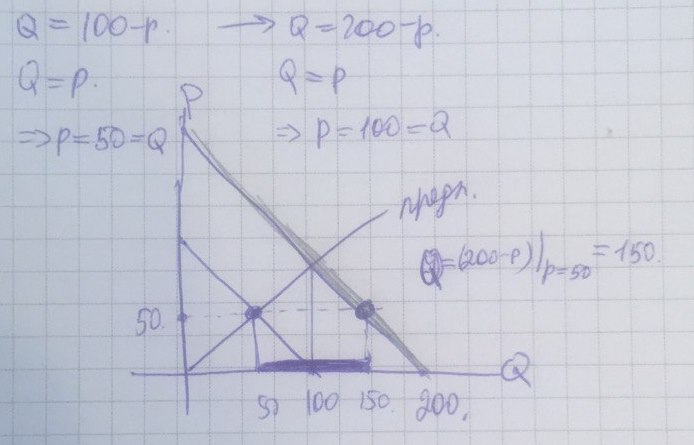 Q = 100-p. → Q = 200-p.
Q = p. Q = p
⇒ p = 50 = Q ⇒ p = 100 = Q
P
предл.
Q = (200-p)|p=50 = 150.
50.
Q
50 100 150. 200.